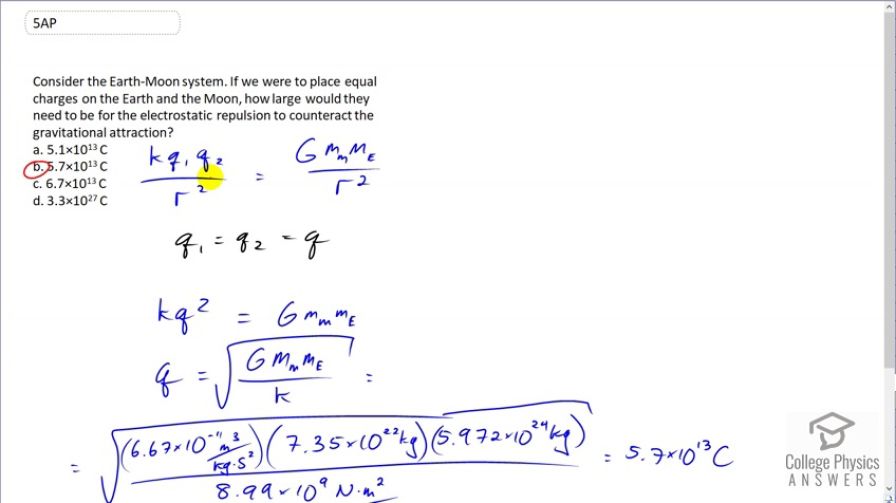 5AP
Consider the Earth-Moon system. If we were to place equal
charges on the Earth and the Moon, how large would they
need to be for the electrostatic repulsion to counteract the
gravitational attraction?
a. 5.1×10¹³ C
b. 5.7×10¹³ C
c. 6.7×10¹³ C
d. 3.3×10²⁷ C
k q₁ q₂ / r² = G mₘ m_E / r²
q₁ = q₂ = q
kq² = G mₘ m_E
q = √(G mₘ m_E / k) =
= √((6.67×10⁻¹¹ m³/kg·s²)(7.35×10²²kg)(5.972×10²⁴kg) / 8.99×10⁹ N·m²) = 5.7×10¹³ C
College Physics
ANSWERS